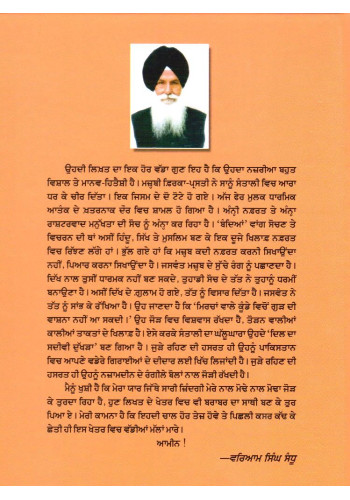 ਉਹਦੀ ਲਿਖ਼ਤ ਦਾ ਇਕ ਹੋਰ ਵੱਡਾ ਗੁਣ ਇਹ ਹੈ ਕਿ ਉਹਦਾ ਨਜ਼ਰੀਆ ਬਹੁਤ
ਵਿਸ਼ਾਲ ਤੇ ਮਾਨਵ-ਹਿਤੈਸ਼ੀ ਹੈ। ਮਜ਼੍ਹਬੀ ਫ਼ਿਰਕਾ-ਪ੍ਰਸਤੀ ਨੇ ਸਾਨੂੰ ਸੰਤਾਲੀ ਵਿਚ ਆਰਾ
ਧਰ ਕੇ ਚੀਰ ਦਿੱਤਾ। ਇਕ ਜਿਸਮ ਦੇ ਦੋ ਟੋਟੇ ਹੋ ਗਏ। ਅੱਜ ਫੇਰ ਮੁਲਕ ਧਾਰਮਿਕ
ਆਤੰਕ ਦੇ ਖ਼ਤਰਨਾਕ ਦੌਰ ਵਿਚ ਸ਼ਾਮਲ ਹੋ ਗਿਆ ਹੈ। ਅੰਨ੍ਹੀ ਨਫ਼ਰਤ ਤੇ ਅੰਨ੍ਹਾ
ਰਾਸ਼ਟਰਵਾਦ ਮਨੁੱਖਤਾ ਦੀ ਸੋਚ ਨੂੰ ਅੰਨ੍ਹਾ ਕਰ ਰਿਹਾ ਹੈ। 'ਬੰਦਿਆਂ' ਵਾਂਗ ਸੋਚਣ ਤੇ
ਵਿਚਰਨ ਦੀ ਥਾਂ ਅਸੀਂ ਹਿੰਦੂ, ਸਿੱਖ ਤੇ ਮੁਸਲਿਮ ਬਣ ਕੇ ਇਕ ਦੂਜੇ ਖਿਲਾਫ਼ ਨਫ਼ਰਤ
ਵਿਚ ਰਿੱਝਣ ਲੱਗੇ ਹਾਂ। ਭੁੱਲ ਗਏ ਹਾਂ ਕਿ ਮਜ਼੍ਹਬ ਕਦੀ ਨਫ਼ਰਤ ਕਰਨੀ ਸਿਖਾਉਂਦਾ
ਨਹੀਂ, ਪਿਆਰ ਕਰਨਾ ਸਿਖਾਉਂਦਾ ਹੈ। ਜਸਵੰਤ ਮਜ਼੍ਹਬ ਦੇ ਸੁੱਚੇ ਰੰਗ ਨੂੰ ਪਛਾਣਦਾ ਹੈ।
ਦਿੱਖ ਨਾਲ ਤੁਸੀਂ ਧਾਰਮਕ ਨਹੀਂ ਬਣ ਸਕਦੇ, ਤੁਹਾਡੀ ਸੋਚ ਦੇ ਤੱਤ ਨੇ ਤੁਹਾਨੂੰ ਧਰਮੀਂ
ਬਨਾਉਣਾ ਹੈ। ਅਸੀਂ ਦਿੱਖ ਦੇ ਗ਼ੁਲਾਮ ਹੋ ਗਏ, ਤੱਤ ਨੂੰ ਵਿਸਾਰ ਦਿੱਤਾ। ਜਸਵੰਤ ਨੇ
ਤੱਤ ਨੂੰ ਸਾਂਭ ਕੇ ਰੱਖਿਆ ਹੈ। ਉਹ ਜਾਣਦਾ ਹੈ ਕਿ 'ਮਿਰਚਾਂ ਵਾਲੇ ਕੂੰਡੇ ਵਿਚੋਂ ਗੁੜ ਦੀ
ਵਾਸ਼ਨਾ ਨਹੀਂ ਆ ਸਕਦੀ।' ਉਹ ਜੋੜ ਵਿਚ ਵਿਸ਼ਵਾਸ ਰੱਖਦਾ ਹੈ, ਤੋੜਨ ਵਾਲੀਆਂ
ਕਾਲੀਆਂ ਤਾਕਤਾਂ ਦੇ ਖਿਲਾਫ਼ ਹੈ। ਏਸੇ ਕਰਕੇ ਸੰਤਾਲੀ ਦਾ ਘੱਲੂਘਾਰਾ ਉਹਦੇ 'ਦਿਲ ਦਾ
ਸਦੀਵੀ ਦੁੱਖੜਾ' ਬਣ ਗਿਆ ਹੈ। ਜੁੜੇ ਰਹਿਣ ਦੀ ਹਸਰਤ ਹੀ ਉਹਨੂੰ ਪਾਕਿਸਤਾਨ
ਵਿਚ ਆਪਣੇ ਵਡੇਰੇ ਗਿਰਾਈਆਂ ਦੇ ਦੀਦਾਰ ਲਈ ਖਿੱਚ ਲਿਜਾਂਦੀ ਹੈ। ਜੁੜੇ ਰਹਿਣ ਦੀ
ਹਸਰਤ ਹੀ ਉਹਨੂੰ ਨਜ਼ਾਮਦੀਨ ਦੇ ਰੰਗੀਲੇ ਬੋਲਾਂ ਨਾਲ ਜੋੜੀ ਰੱਖਦੀ ਹੈ।
ਮੈਨੂੰ ਖ਼ੁਸ਼ੀ ਹੈ ਕਿ ਮੇਰਾ ਯਾਰ ਜਿੱਥੇ ਸਾਰੀ ਜ਼ਿੰਦਗੀ ਮੇਰੇ ਨਾਲ ਮੋਢੇ ਨਾਲ ਮੋਢਾ ਜੋੜ
ਕੇ ਤੁਰਦਾ ਰਿਹਾ ਹੈ, ਹੁਣ ਲਿਖਤ ਦੇ ਖੇਤਰ ਵਿਚ ਵੀ ਬਰਾਬਰ ਦਾ ਸਾਥੀ ਬਣ ਕੇ ਤੁਰ
ਪਿਆ ਏ। ਮੇਰੀ ਕਾਮਨਾ ਹੈ ਕਿ ਇਹਦੀ ਚਾਲ ਹੋਰ ਤੇਜ਼ ਹੋਵੇ ਤੇ ਪਿਛਲੀ ਕਸਰ ਕੱਢ ਕੇ
ਛੇਤੀ ਹੀ ਇਸ ਖੇਤਰ ਵਿਚ ਵਡੀਆਂ ਮੱਲਾਂ ਮਾਰੇ।
ਆਮੀਨ !
—ਵਰਿਆਮ ਸਿੰਘ ਸੰਧੂ